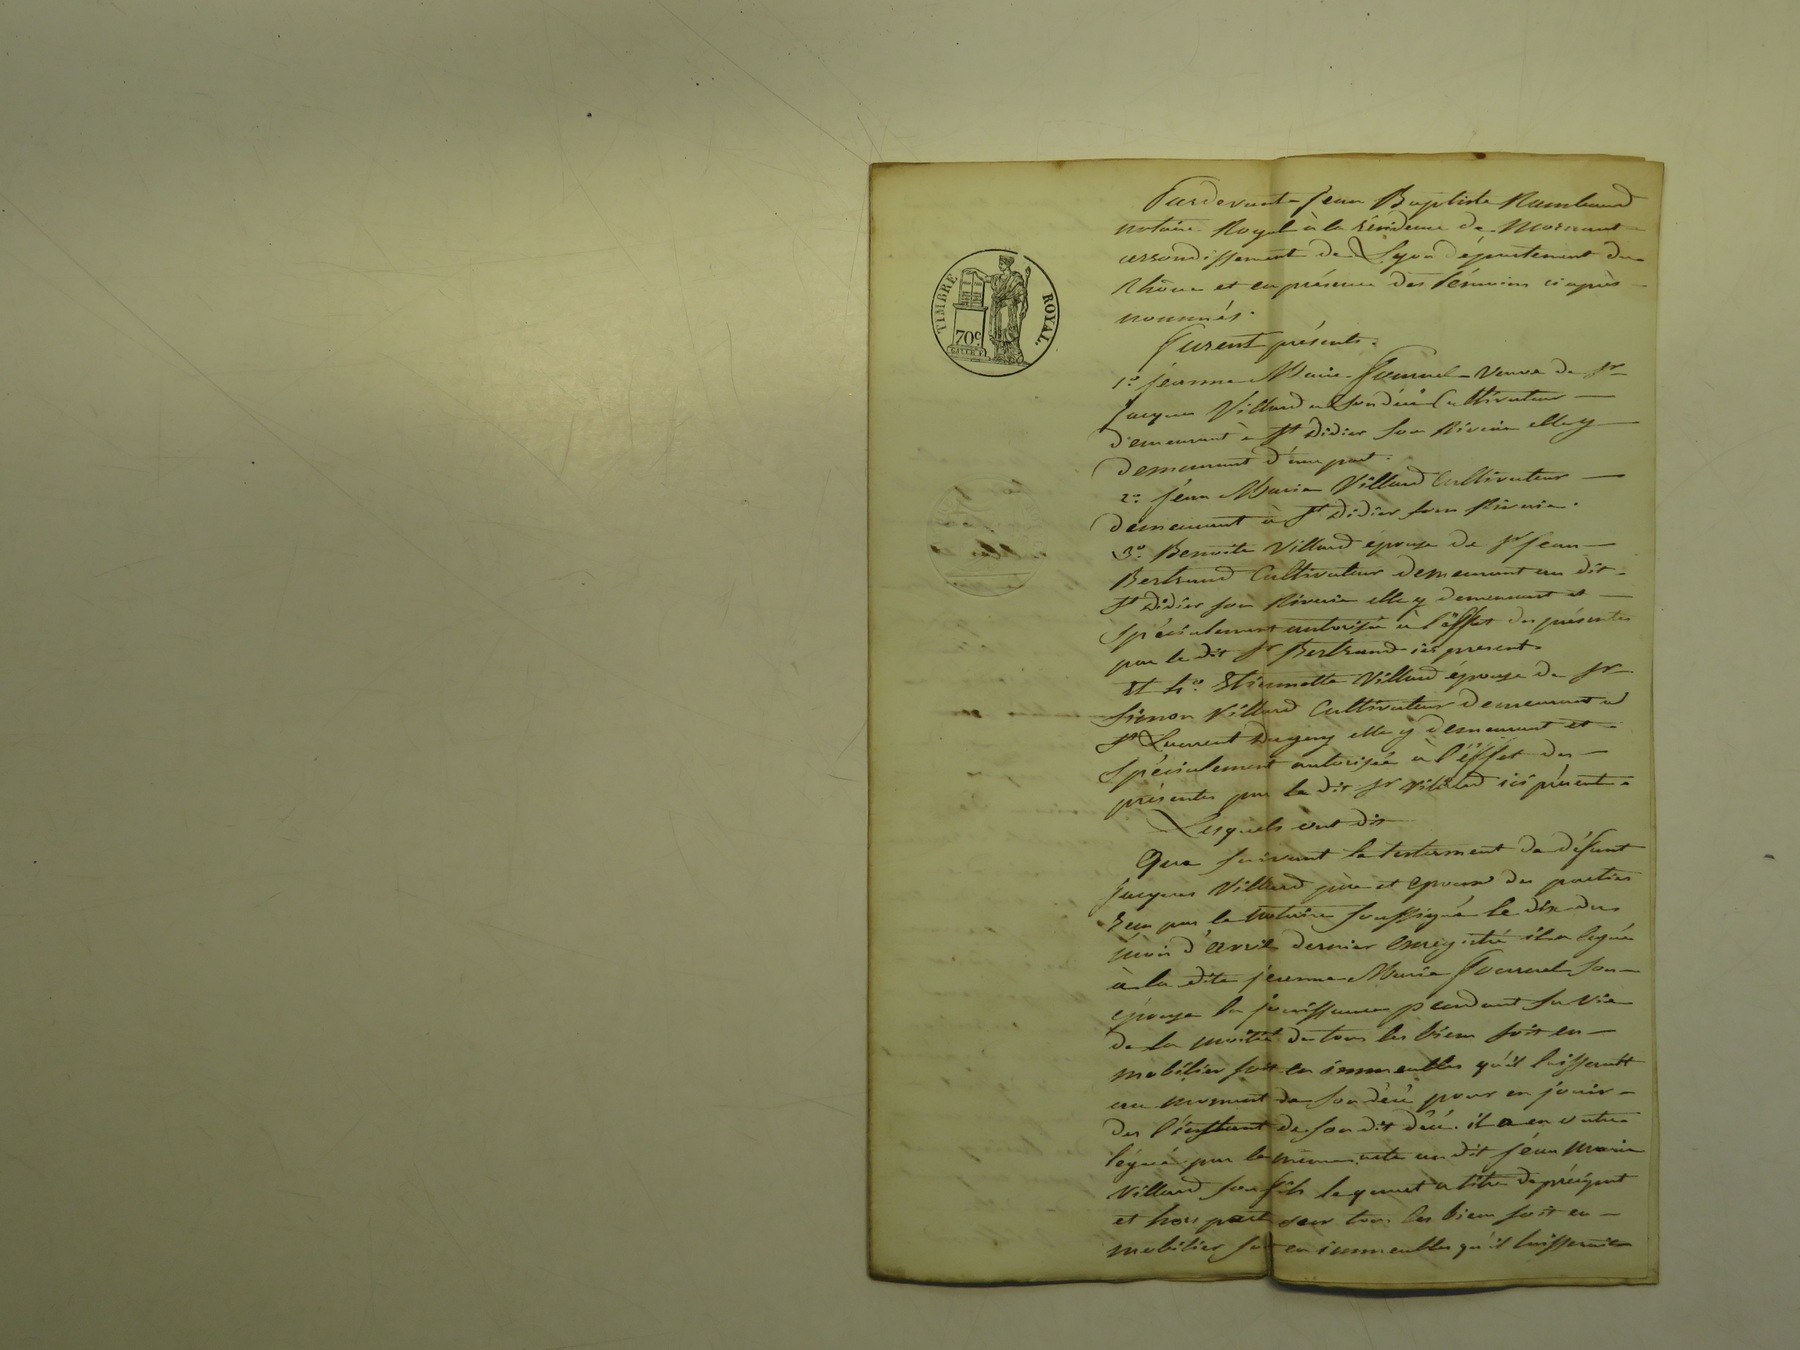 TIMBRE ROYAL.
70c
Pardevant Jean Baptiste Rambaud
notaire Royal à la résidence de Mornant
arrondissement de Lyon département du
Rhône et en présence des témoins ciaprès
nommés.
Furent présents.
1º. Jeanne Marie Fournel Veuve de Sr
Jacques Villard à son décè Cultivateur
demeurant à St Didier sou Riverie elle y
demeurant d'une part.
2º. Jean Marie Villard Cultivateur
demeurant à St Didier sou Riverie.
3º. Benoite Villard épouse de Sr Jean
Bertrand Cultivateur demeurant au dit
St Didier sou Riverie elle y demeurant et
Spécialement autorisée à l'éffet des présentes
par le dit Sr Bertrand ici present
Et 4º. Etiennette Villard épouse de Sr
Simon Villard Cultivateur demeurant à
St Laurent Dagny elle y demeurant et
Spécialement autorisée à l'éffet des
présentes par le dit Sr Villard ici présent
Lesquels ont dit
Que suivant le testament de défunt
Jacques Villard père et époux des parties
reçu par le notaire soussigné le dix du
mois d'avril dernier enregistré il a légué
à la dite jeanne Marie Fournel son
épouse la jouissance pendant sa vie
de la moitié de tous les biens soit en
mobilier soit en immeubles qu'il laisserait
au moment de son décè pour en jouir
des l'instant de son dit décè. il a en outre
légué par le même acte au dit jean marie
Villard son fils le quart a titre de préciput
et hors part sur tous les biens soit en
mobilier soit en immeubles qu'il laisserait